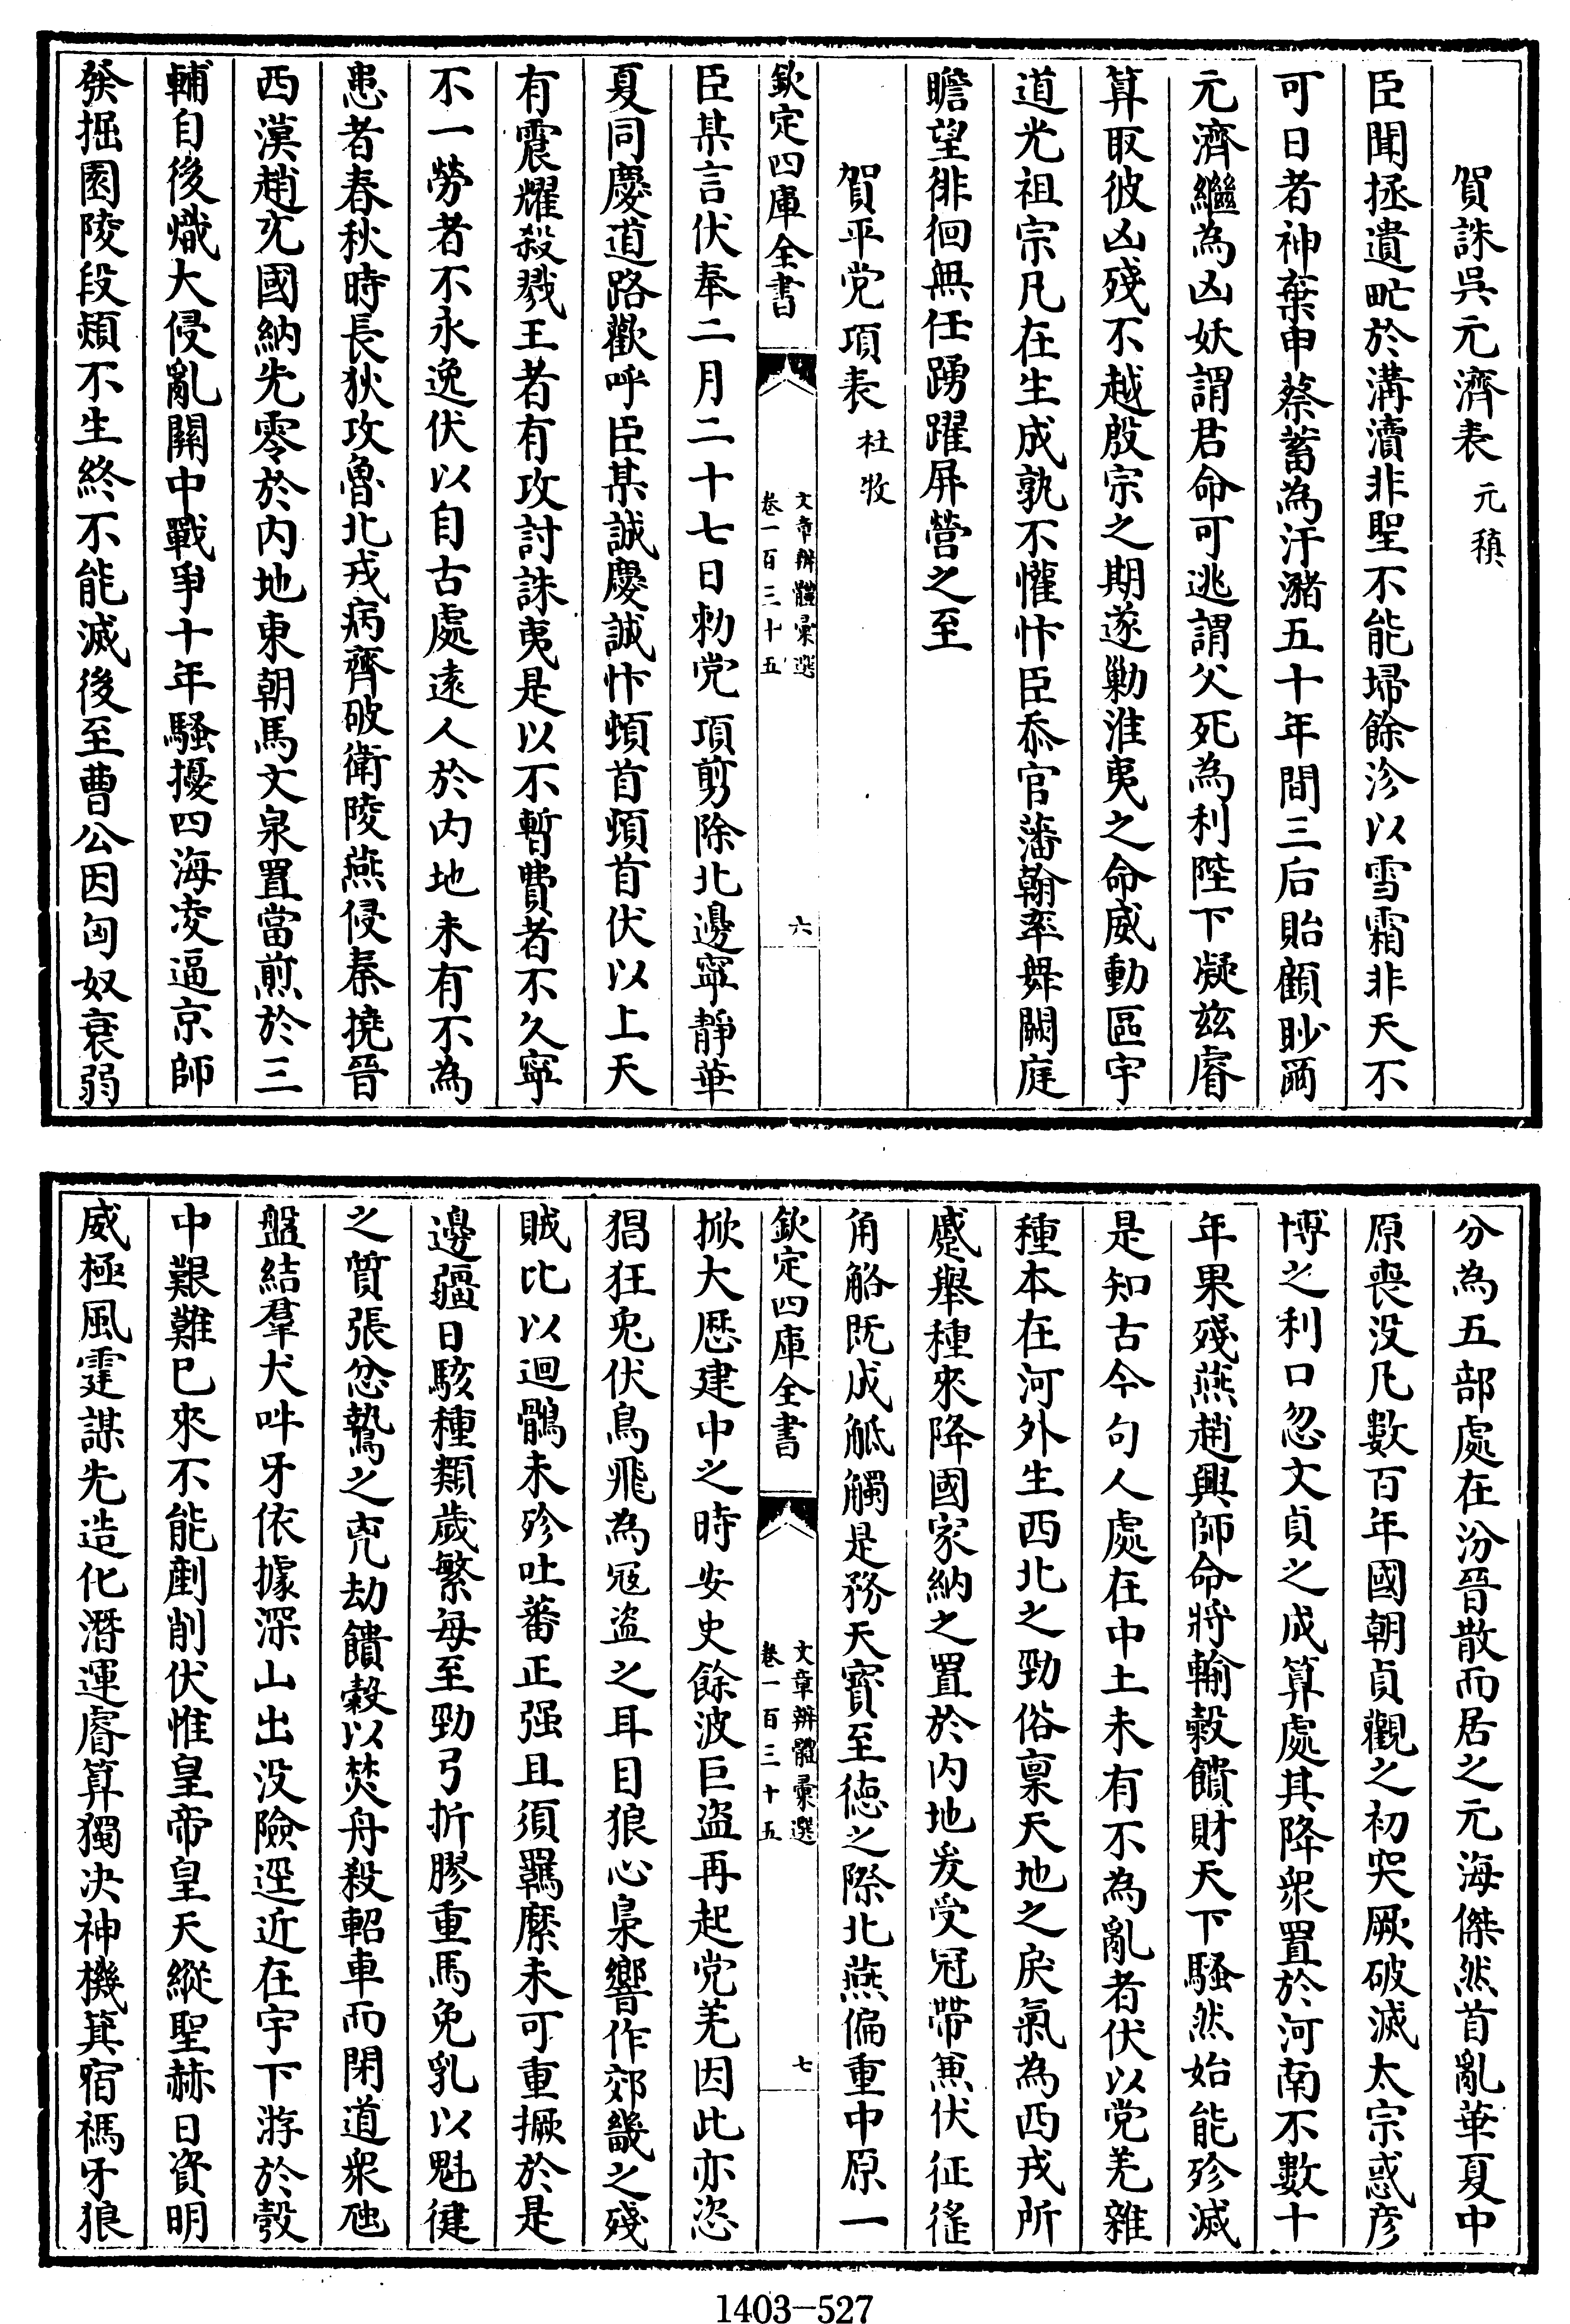 賀誅吳元濟表 元稹
臣聞拯遺甿於溝瀆非聖不能埽餘沴以雪霜非天不
可日者神棄申蔡蓄為汙瀦五十年間三后貽顧眇爾
元濟繼為凶妖謂君命可逃謂父死為利陛下凝兹睿
算取彼凶殘不越殷宗之期遂勦淮夷之命威動區宇
道光祖宗凡在生成孰不懽忭臣忝官藩翰率舞闕庭
瞻望徘徊無任踴躍屏營之至
賀平党項表 杜牧
欽定四庫全書 文章辨體彙選 卷一百三十五 六
臣某言伏奉二月二十七日勑党項剪除北邊寧靜華
夏同慶道路歡呼臣某誠慶誠忭頓首頓首伏以上天
有震耀殺戮王者有攻討誅夷是以不暫費者不久寧
不一勞者不永逸伏以自古處遠人於内地未有不為
患者春秋時長狄攻魯北戎病齊破衛陵燕侵秦撓晉
西漢趙充國納先零於内地東朝馬文泉置當煎於三
輔自後熾大侵亂關中戰爭十年騷擾四海凌逼京師
發掘園陵段熲不生終不能滅後至曹公因匈奴衰弱
分為五部處在汾晉散而居之元海傑然首亂華夏中
原喪没凡數百年國朝貞觀之初突厥破滅太宗惑彦
博之利口忽文貞之成算處其降衆置於河南不數十
年果殘燕趙興師命將輸糓饋財天下騷然始能殄滅
是知古今句人處在中土未有不為亂者伏以党羌雜
種本在河外生西北之勁俗稟天地之戾氣為西戎所
蹙舉種來降國家納之置於内地爰受冠帶兼伏征徭
角觡既成觝觸是務天寳至德之際北燕偏重中原一
欽定四庫全書 文章辨體彙選 卷一百三十五 七
掀大厯建中之時安史餘波巨盜再起党羌因此亦恣
猖狂兎伏鳥飛為冦盜之耳目狼心梟響作郊畿之殘
賊比以迴鶻未殄吐蕃正强且須羈縻未可重撅於是
邊疆日駭種類歲繁每至勁弓折膠重馬免乳以魁健
之質張忿鷙之兇劫饋糓以焚舟殺軺車而閉道衆虺
盤結羣犬吽牙依據深山出没險逕近在宇下游於彀
中艱難已來不能剷削伏惟皇帝皇天縱聖赫日資明
威極風霆謀先造化潛運睿算獨决神機箕宿禡牙狼
1403-527